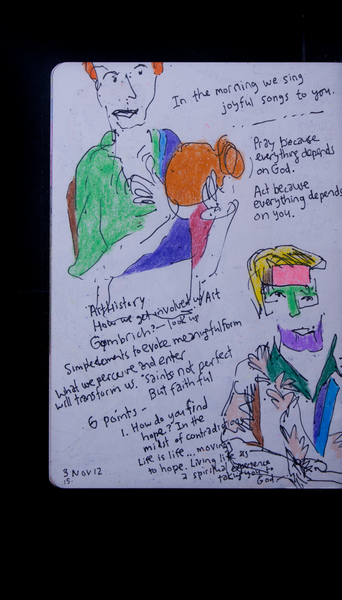 In the morning we sing
joyful songs to you.
Pray because
everything depends
on God.
Act because
everything depends
on you.
Art History
How we get involved w/ Art
Gombrich? - look up
Simple elements to evoke meaningful form
What we perceive and enter
will transform us. "Saints not perfect
But faithful
6 points -
1. How do you find
hope? In the
midst of contradic
Life is life... moving
to hope. Living life as
a spiritual experience
taking you to
God.
3 NOV 12
15.